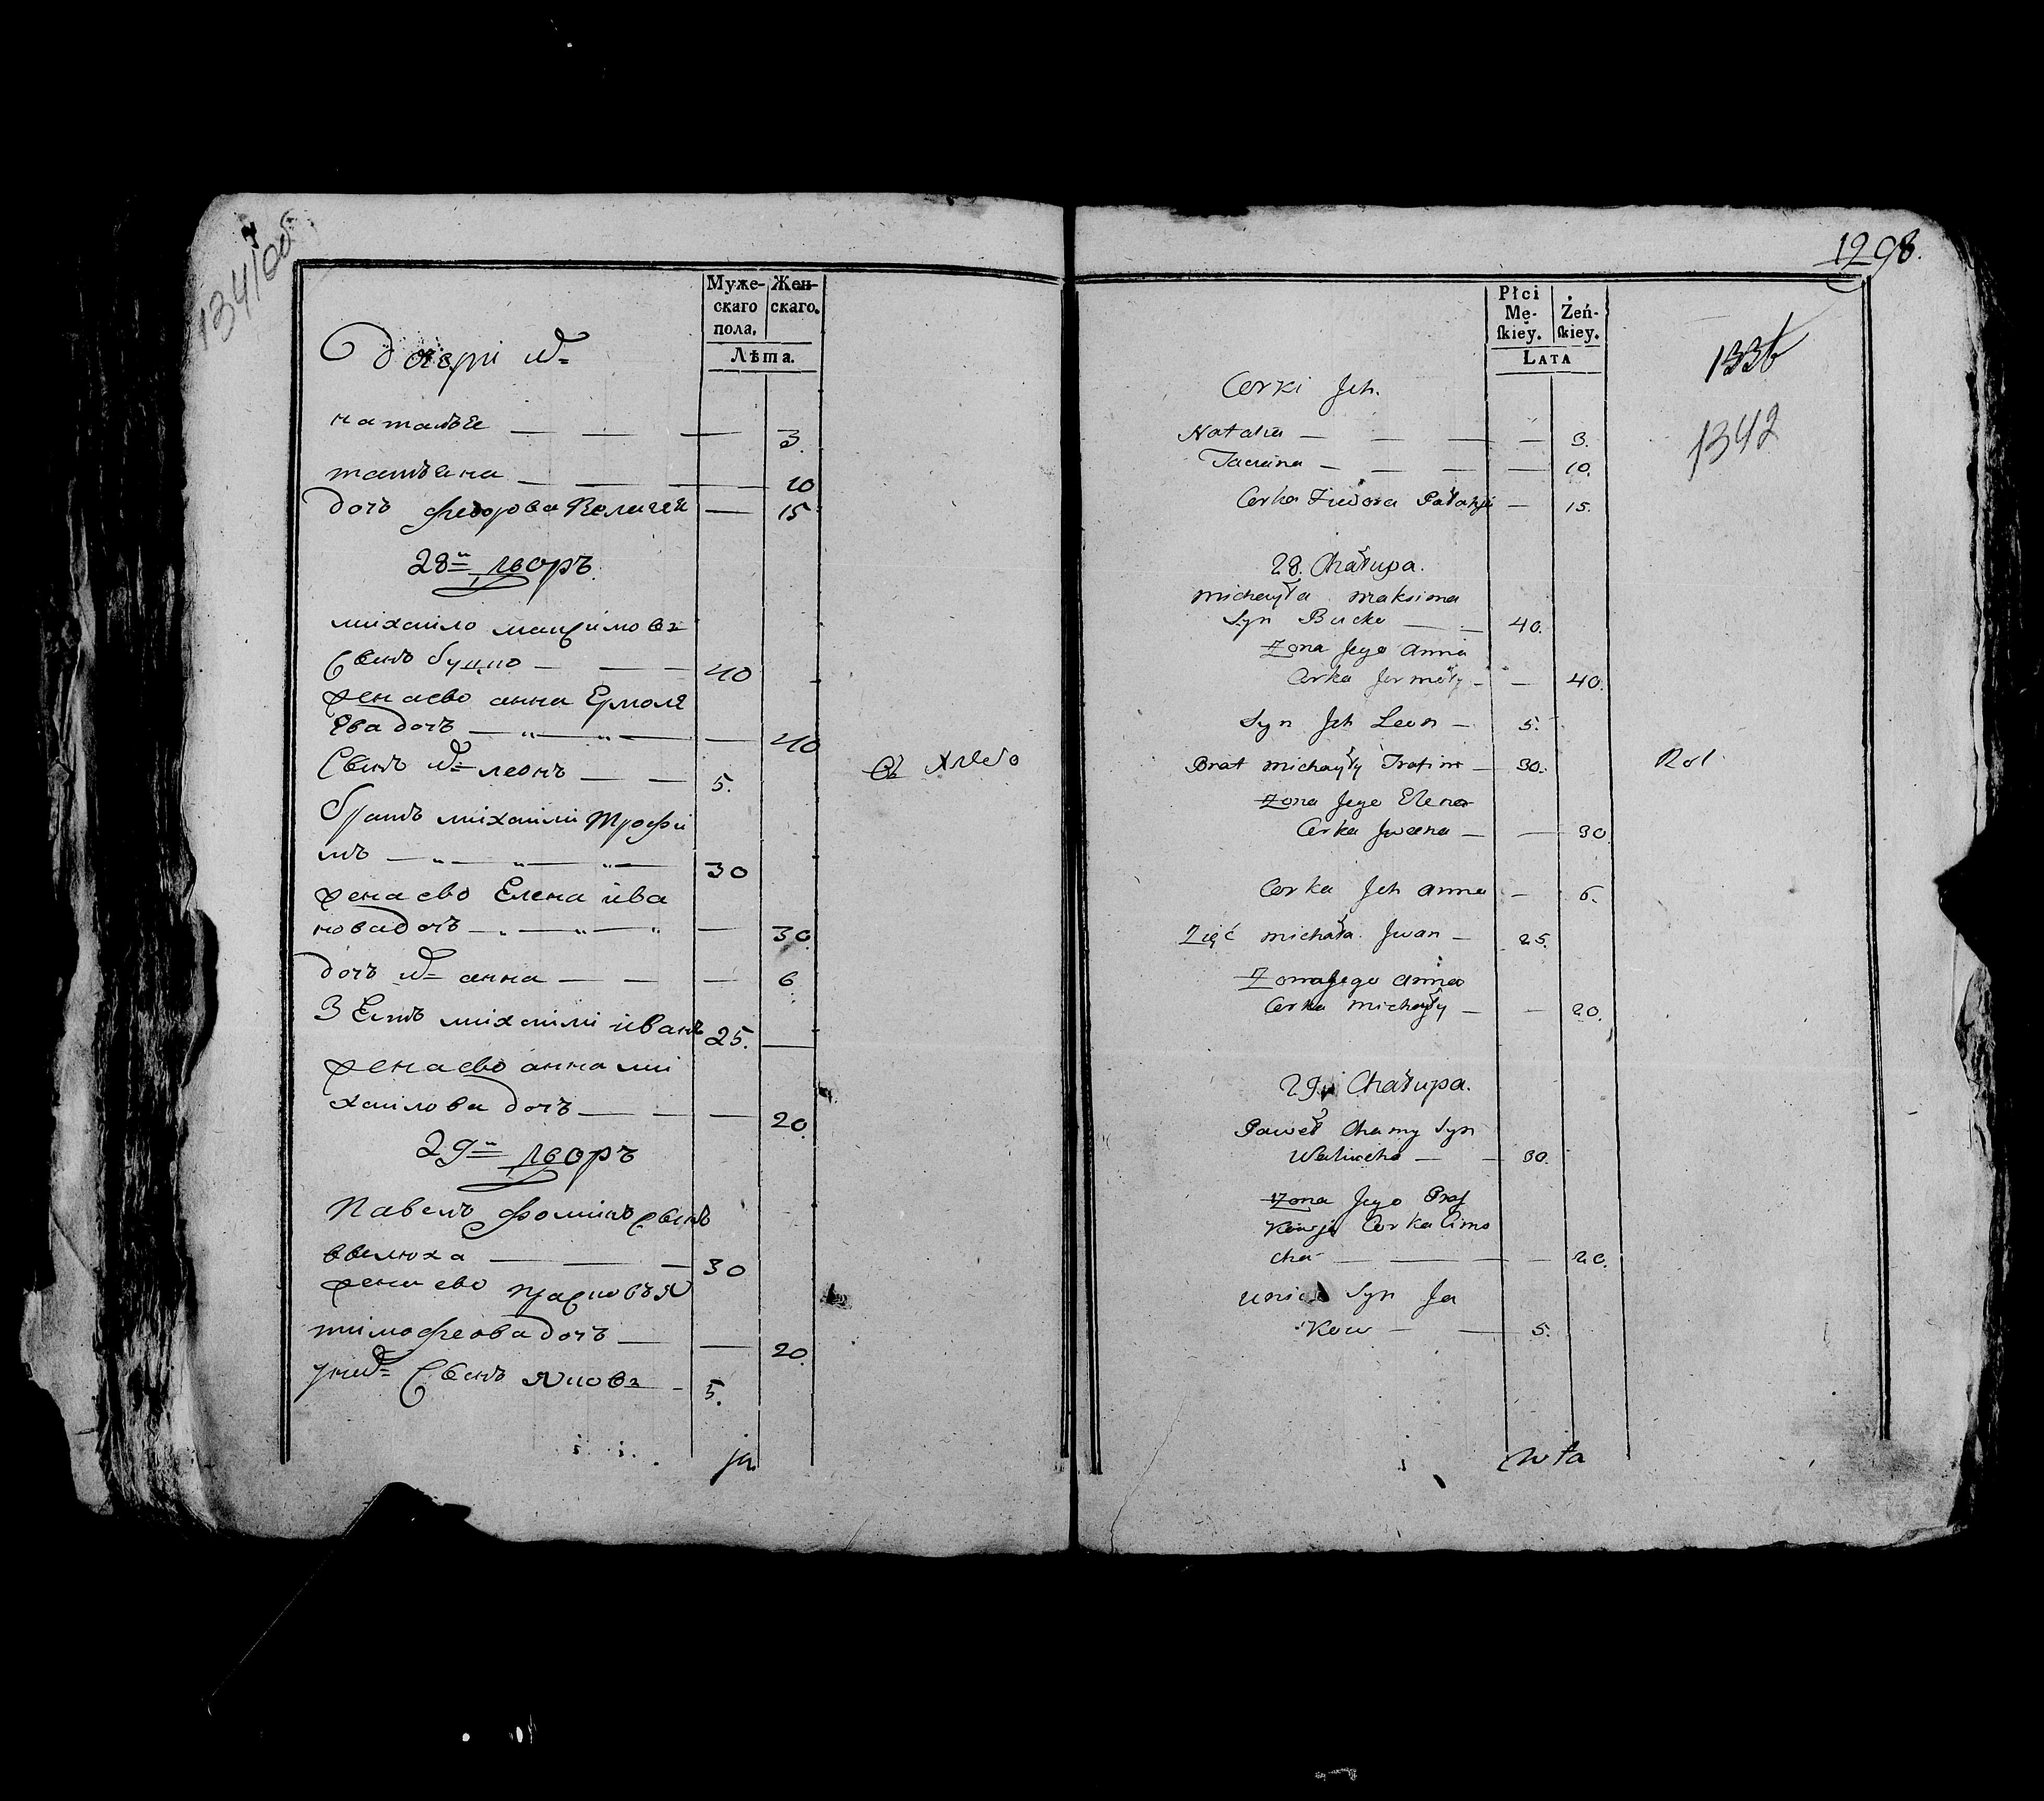 134/об
Муже-
скаго
пола.
Жен-
скаго.
Лѣта.
дочери их
наталъя — — — 3.
татъяна — — — 10
дочъ федорова Пелагея — 15
28й дворъ
михаило максимовъ
сынъ буцко — — 40
жена ево анна Ермоля
Ева дочъ — — — 40
Сынъ их леонъ — — 5.
братъ михаили трофи
мъ — — — 30
жена ево Елена ива
нова дочъ — — — 30.
дочъ их анна — — — 6
Зеть михаили иванъ 25. —
жена ево анна ми
хаилова дочъ — — — 20.
29й дворъ
Павелъ фоминъ сынъ
валюха — — — 30
жена ево прасковъя
тимофеова дочъ — — 20.
у них сынъ яковъ — 5.
ja
1298.
Płci
Mę-
ſkiey.
Żeń-
ſkiey.
LATA
133b
1342
Corki Jch.
Natalia — — — — 3.
Tacianna — — — — 10.
Corka Fiedora Pałahja — 15.
28. Chałupa.
michayła maksima
Syn Bucko — — 40.
Żona Jego anna
Corka Jermoły — — 40.
Syn Jch Leon — 5.
Brat michayły Trofim — 30.
Żona Jego Elena
Corka Jwana — — 30.
Corka Jch anna — 6.
Zięć michała Jwan — 25.
Żona Jego anna
Corka michayły — — 20.
29. Chałupa.
Paweł Chamy Syn
— — 30.
Żona Jego Pras
kowja Corka Cimo
cha — — — — 20.
unich Syn Ja
kow — — 5.